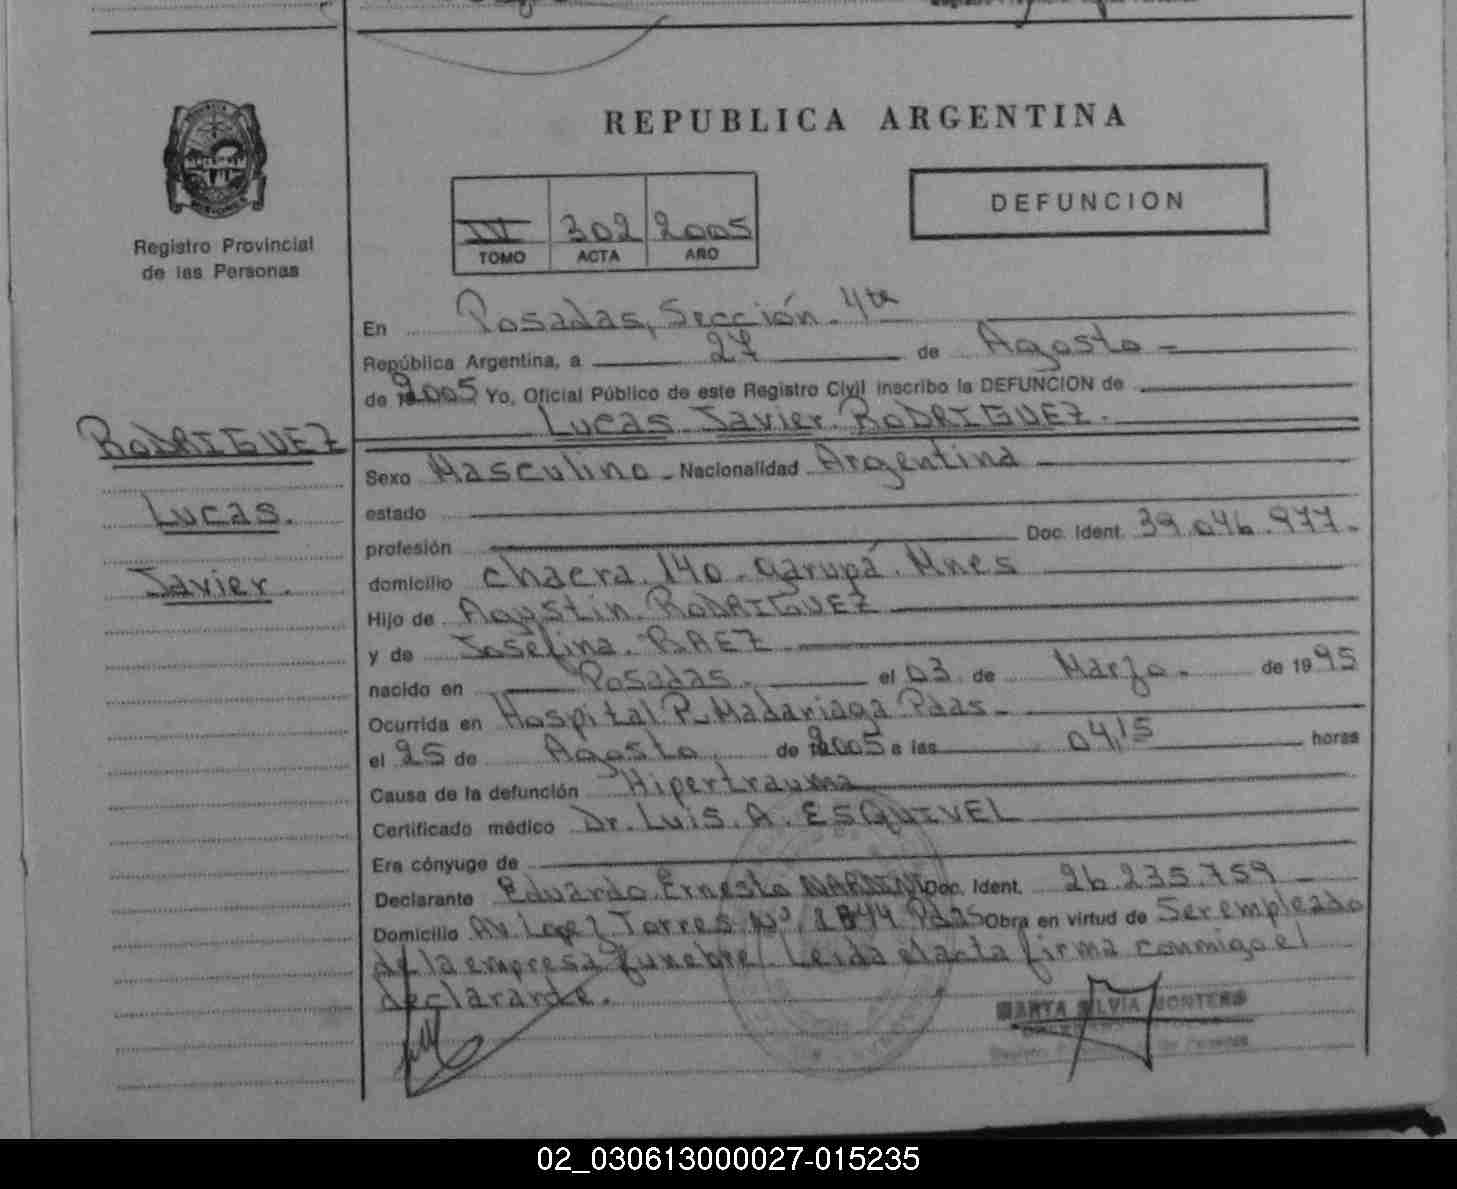 REPUBLICA ARGENTINA
DEFUNCION
Registro Provincial
de las Personas
IV 302 2005
TOMO ACTA AÑO
En Posadas, Sección 4ta
República Argentina, a 27 de Agosto
de 2005 Yo, Oficial Público de este Registro Civil inscribo la DEFUNCION de
Lucas Javier RODRIGUEZ.
RODRIGUEZ
Lucas.
Javier.
Sexo Masculino - Nacionalidad Argentina
estado
profesión Doc. Ident. 39.046.977.
domicilio chacra 140 - Garupá. Mnes
Hijo de Agustin RODRIGUEZ
y de Josefina BAEZ
nacido en Posadas. el 03 de Marzo. de 1995
Ocurrida en Hospital R. Madariaga Pdas -
el 25 de Agosto de 2005 a las 04,15 horas
Causa de la defunción Hipertrauma
Certificado médico Dr. Luis A. ESQUIVEL
Era cónyuge de
Declarante Eduardo Ernesto Doc. Ident. 26.235.759
Domicilio Av. Lopez Torres Nº 1844 Pdas Obra en virtud de Ser empleado
de la empresa funebre. Leida el acta firma conmigo el
declarante.
MARTA SILVIA MONTERO
02_030613000027-015235